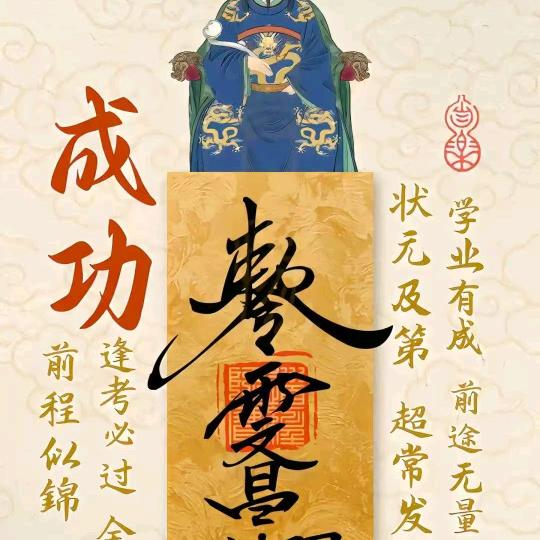 成功
学业有成 前途无量
状元及第 超常发
逢考必过 全
前程似錦
文昌